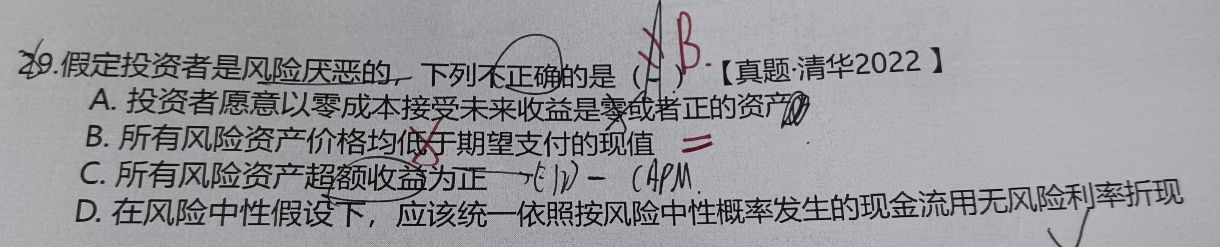 29.假定投资者是风险厌恶的，下列不正确的是（ ）B.【真题·清华2022 】
A. 投资者愿意以零成本接受未来收益是零或者正的资产
B. 所有风险资产价格均低于期望支付的现值 =
C. 所有风险资产超额收益为正 → E(r) - CAPM.
D. 在风险中性假设下，应该统一依照按风险中性概率发生的现金流用无风险利率折现